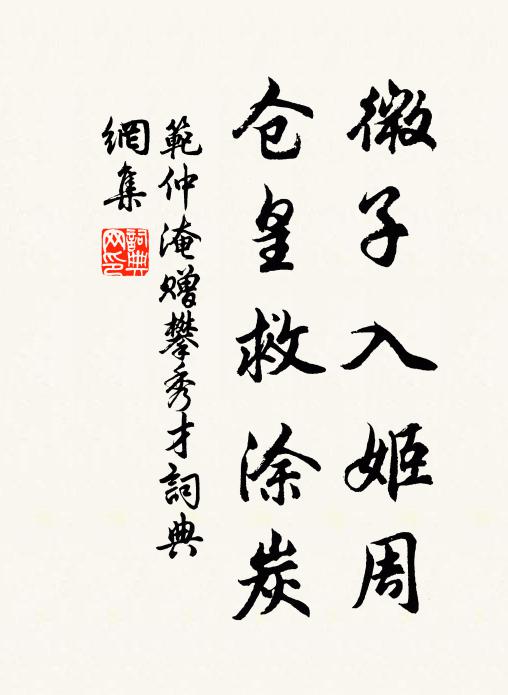 微子入姬周
仓皇救涂炭
範仲淹赠攀秀才詞典
網集
詞典网印